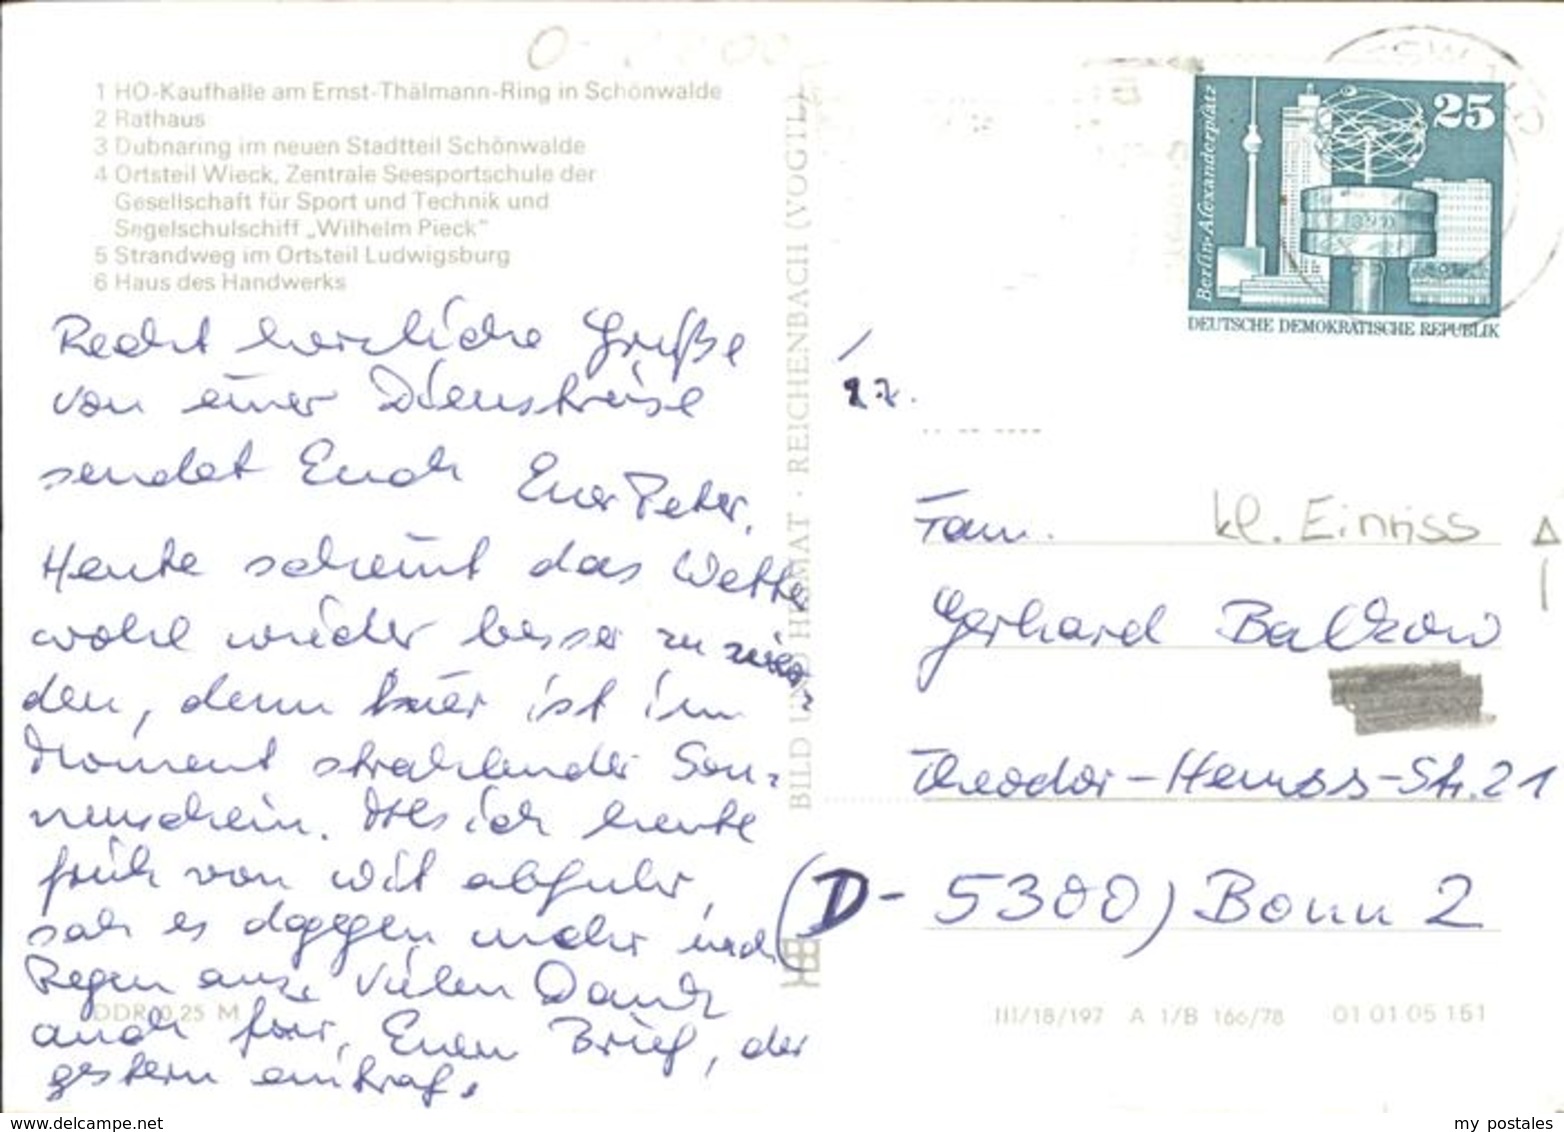 1 HO-Kaufhalle am Ernst-Thälmann-Ring in Schönwalde
2 Rathaus
3 Dubnaring im neuen Stadtteil Schönwalde
4 Ortsteil Wieck, Zentrale Seesportschule der
Gesellschaft für Sport und Technik und
Segelschulschiff „Wilhelm Pieck"
5 Strandweg im Ortsteil Ludwigsburg
6 Haus des Handwerks
Recht herzliche Grüße
von einer Dienstreise
sendet Euch Euer Peter.
Heute scheint das Wetter
wohl wieder besser zu wer-
den, denn hier ist im
Moment strahlender Son-
nenschein. Als ich heute
früh von abfuhr,
sah es dagegen mehr nach
Regen aus. Vielen Dank
auch für Euren Brief, der
gestern eintraf.
DDR 0,25 M
BILD UND HEIMAT · REICHENBACH (VOGTL)
Berlin-Alexanderplatz
25
DEUTSCHE DEMOKRATISCHE REPUBLIK
Fam. kl. Einriss
Gerhard Balkow
Theodor-Heuss-Str. 21
(D-5300) Bonn 2
III/18/197 A 1/B 166/78 01 01 05 151
delcampe.net
my postales